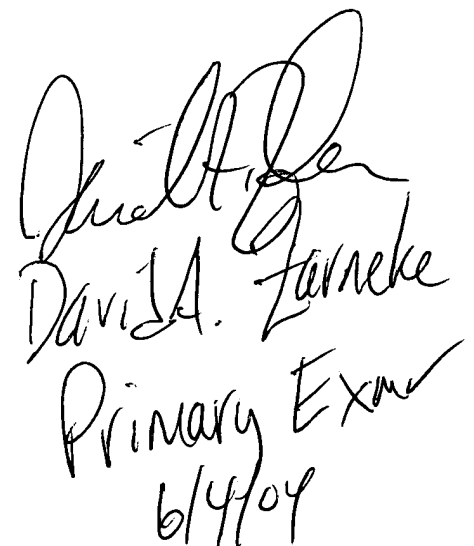 David A. Zarneke
Primary Exmr
6/4/04